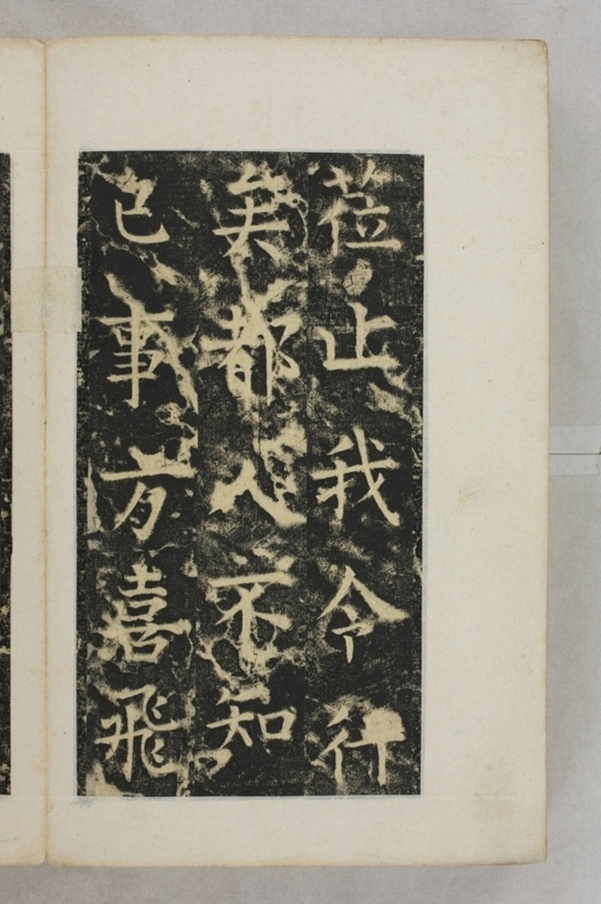 莅止我令行
矣都人不知
已事方喜飛